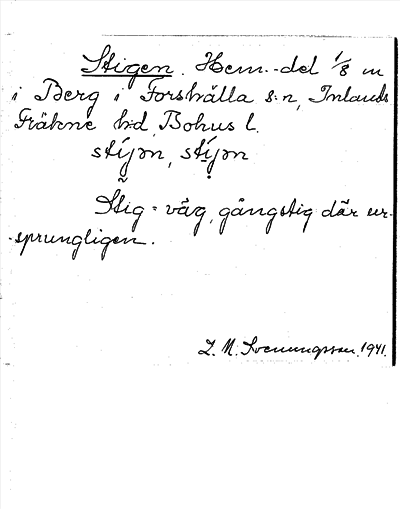 Stigen. Hem.-del 1/8 m
i Berg i Forshälla s:n, Inlands
Fräkne h:d, Bohus l.
Stig = väg, gångstig där ur-
-sprungligen.
Z. M. Svenungsson. 1941.